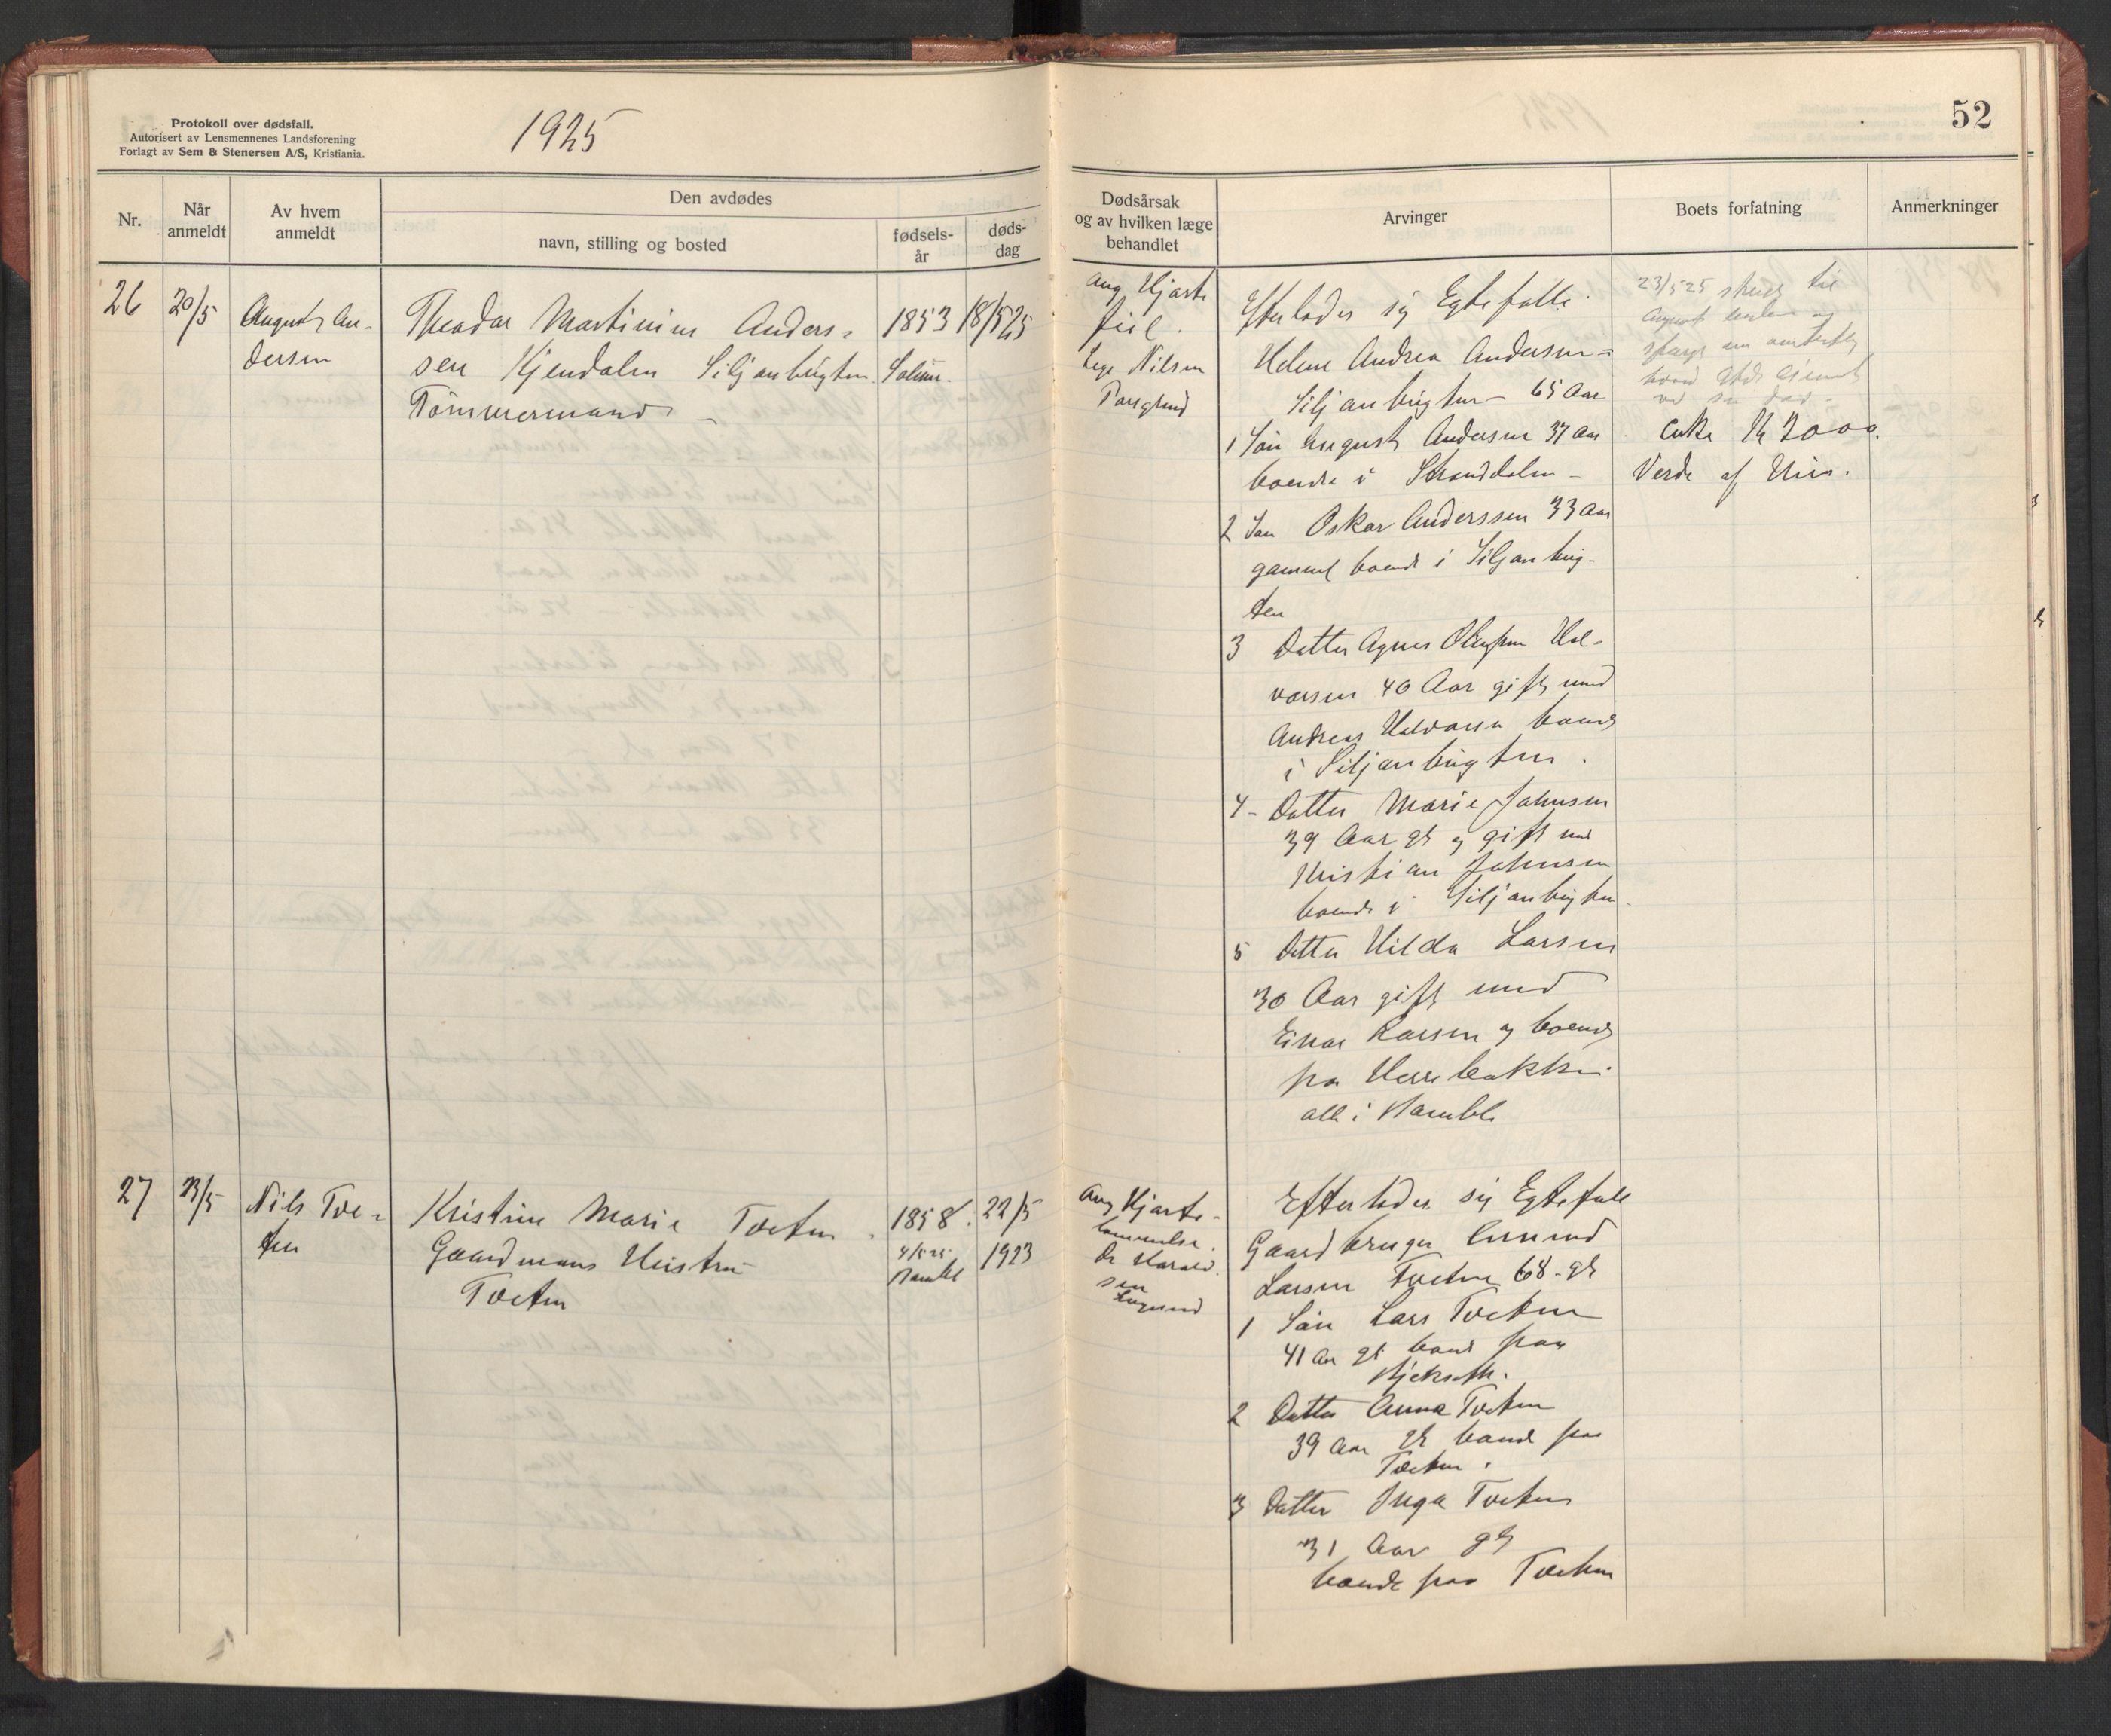 Protokoll over dødsfall.
Autorisert av Lensmennenes Landsforening
Forlagt av Sem & Stenersen A/S, Kristiania.
1925
52
Nr.
Når
anmeldt
Av hvem
anmeldt
Den avdødes
navn, stilling og bosted
fødsels-
år
døds-
dag
Dødsårsak
og av hvilken læge
behandlet
Arvinger
Boets forfatning
Anmerkninger
26
20/5
August An-
dersen
Theodor Martinius Anders-
sen Kjendalen Siljanbugten
Tømmermand
1853
Solum.
18/5 25
Ang Hjerte
feil.
Lege Nilsen
Porsgrund
Efterlader sig Egtefælle
Helene Andrea Andersen
Siljanbugten 65 Aar
1 Søn August Andersen 37 Aar
boende i Stranddalen
2 Søn Oskar Anderssen 33 Aar
gammel boende i Siljanbug-
ten
3 Datter Agnes Hal-
vorsen 40 Aar gift med
Andreas Halvorsen boende
i Siljanbugten.
4- Datter Marie Johnsen
39 Aar gl og gift med
Kristian Johnsen
boende i Siljanbugten
5 Datter Hilda Larsen
30 Aar gift med
Einar Larsen og boende
paa Herrebakken
alle i Bamble
23/5 25 til
August og
om
ved
Kr 2000
Verde af Hus.
27
23/5
Nils Tve-
ten
Kristine Marie Tveten
Gaardmans Hustru
Tveten
1858.
4/5 25
Bamble
22/5
1923
Ang Hjerte-
lammelse.
Dr Harald-
sen
Efterlader sig Egtefælle
Gaardbruger
Larsen Tveten 68- gl
1 Søn Lars Tveten
41 Aar gl boende paa
2 Datter Anna Tveten
39 Aar gl boende paa
Tveten.
3 Datter Inga Tveten
31 Aar gl
boende paa Tveten